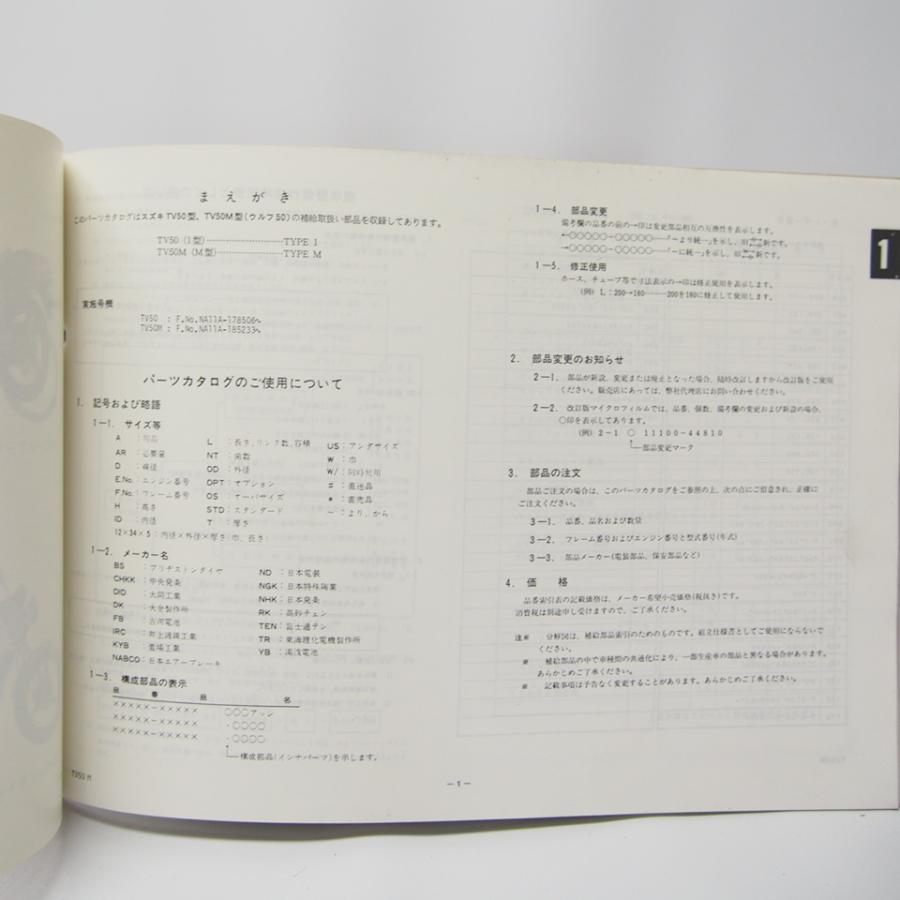 まえがき
このパーツカタログはスズキTV50型、TV50M型(ウルフ50)の補給取扱い部品を収録してあります。
TV50 (I型)……………………TYPE I
TV50M (M型)……………………TYPE M
実施号機
TV50 : F.No.NA11A-178506〜
TV50M : F.No.NA11A-185233〜
パーツカタログのご使用について
1. 記号および略語
1-1. サイズ等
A :
AR :必要量
D :線径
E.No.:エンジン番号
F.No.:フレーム番号
H :高さ
ID :内径
L :長さ,リンク数,容積
NT :歯数
OD :外径
OPT :オプション
OS :オーバサイズ
STD :スタンダード
T :厚さ
US :アンダサイズ
W :巾
W/ :同時使用
# :直送品
* :直売品
〜 :より,から
12×34×5:内径×外径×厚さ(巾、長さ)
1-2. メーカー名
BS :ブリヂストンタイヤ
CHKK :中央発条
DID :大同工業
DK :大倉製作所
FB :古河電池
IRC :井上護謨工業
KYB :萱場工業
NABCO:日本エアーブレーキ
ND :日本電装
NGK :日本特殊陶業
NHK :日本発条
RK :高砂チェン
TEN :富士通テン
TR :東海理化電機製作所
YB :湯浅電池
1-3. 構成部品の表示
品 番 品 名
×××××-××××× ○○○アッシ
×××××-××××× ・○○○○
×××××-××××× ・○○○○
構成部品(インナパーツ)を示します。
TV50 M
1-4. 部品変更
備考欄の品番の前の→印は変更部品相互の互換性を表示します。
←○○○○○-○○○○○……「〜より統一」を示し、旧 新です。
→○○○○○-○○○○○……「〜に統一」を示し、旧 新です。
1-5. 修正使用
ホース、チューブ等で寸法表示の→印は修正使用を表示します。
(例) L:200→180………200を180に修正して使用します。
2. 部品変更のお知らせ
2-1. 部品が新設、変更または廃止となった場合、随時改訂しますから改訂版をご使用
ください。販売店にあっては、弊社代理店にお問い合わせください。
2-2. 改訂版マイクロフィルムでは、品番、個数、備考欄の変更および新設の場合、
○印を表示してあります。
(例) 2-1 ○ 11100-44810
部品変更マーク
3. 部品の注文
部品ご注文の場合は、このパーツカタログをご参照の上、次の点にご留意され、正確に
ご注文ください。
3-1. 品番、品名および数量
3-2. フレーム番号およびエンジン番号と型式番号(年式)
3-3. 部品メーカー(電装部品、保安部品など)
4. 価 格
品番索引表の記載価格は、メーカー希望小売価格(税抜き)です。
消費税は別途申し受けますので、ご了承ください。
注※ 分解図は、補給部品索引のためのものです。組立仕様書としてご使用にならないで
ください。
※ 補給部品の中で車種間の共通化により、一部生産車の部品と異なる場合があります。
あらかじめご了承ください。
※ 記載事項は予告なく変更することがあります。あらかじめご了承ください。
-1-
1